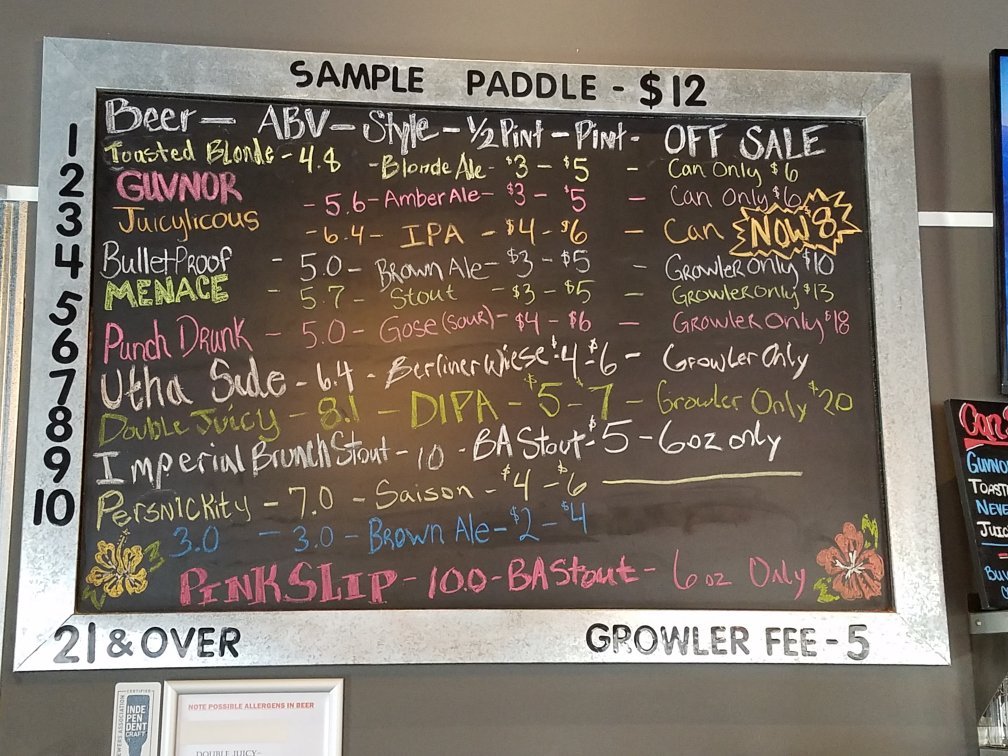 SAMPLE PADDLE - $12
Beer - ABV - Style - 1/2 Pint - Pint - OFF SALE
1 Toasted Blonde - 4.8 - Blonde Ale - $3 - $5 - Can Only $6
2 GUVNOR - 5.6 - Amber Ale - $3 - $5 - Can Only $6
3 Juicylicous - 6.4 - IPA - $4 - $6 - Can NOW 8
4 BulletProof - 5.0 - Brown Ale - $3 - $5 - Growler Only $10
MENACE - 5.7 - Stout - $3 - $5 - Growler Only $13
5 Punch Drunk - 5.0 - Gose (sour) - $4 - $6 - Growler Only $18
6 Utha Side - 6.4 - Berliner Wiese - $4 - $6 - Growler Only
7 Double Juicy - 8.1 - DIPA - $5 - 7 - Growler Only $20
8 Imperial Brunch Stout - 10 - BA Stout - $5 - 6oz only
9 Persnickity - 7.0 - Saison - $4 - $6
10 3.0 - 3.0 - Brown Ale - $2 - $4
PINK SLIP - 10.0 - BA Stout - 6 oz Only
21 & OVER GROWLER FEE - 5
GUVNO
TOAST
NEVE
JUIC
CERTIFIED
INDE
PEN
DENT
CRAFT
NOTE POSSIBLE ALLERGENS IN BEER
DOUBLE JUICY-